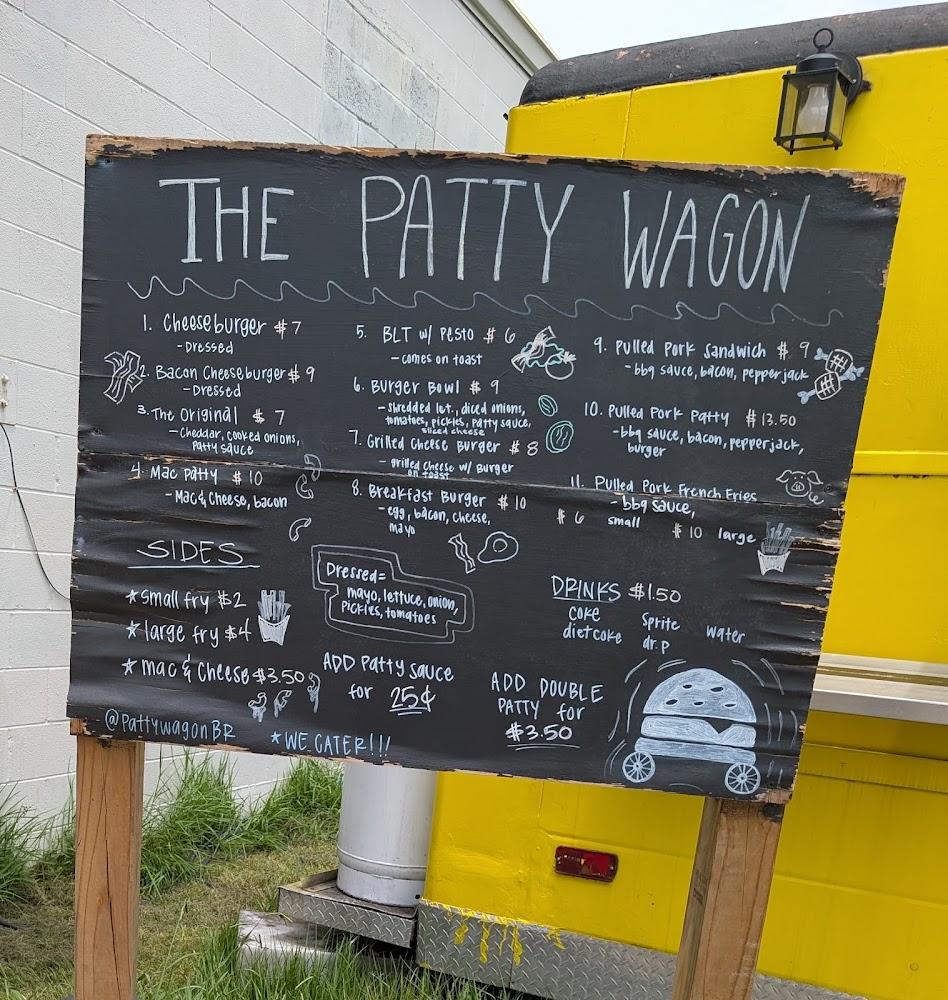 THE PATTY WAGON
1. Cheeseburger $7
-Dressed
2. Bacon Cheeseburger $9
-Dressed
3. The Original $7
-Cheddar, cooked onions,
patty sauce
4. Mac Patty $10
-Mac & Cheese, bacon
5. BLT w/ Pesto $6
-comes on toast
6. Burger Bowl $9
-shredded let., diced onions,
tomatoes, pickles, patty sauce,
sliced cheese
7. Grilled Cheese Burger $8
-grilled cheese w/ Burger
on toast
8. Breakfast Burger $10
-egg, bacon, cheese,
mayo
9. Pulled Pork Sandwich $9
-bbq sauce, bacon, pepperjack
10. Pulled Pork Patty $13.50
-bbq sauce, bacon, pepperjack,
burger
11. Pulled Pork French Fries
-bbq sauce,
$6 small $10 large
SIDES
★small fry $2
★large fry $4
★mac & Cheese $3.50
Dressed=
mayo, lettuce, onion,
Pickles, tomatoes
ADD Patty sauce
for 25¢
DRINKS $1.50
coke Sprite water
diet coke dr.p
ADD DOUBLE
PATTY for
$3.50
@PattywagonBR
★WE CATER!!!